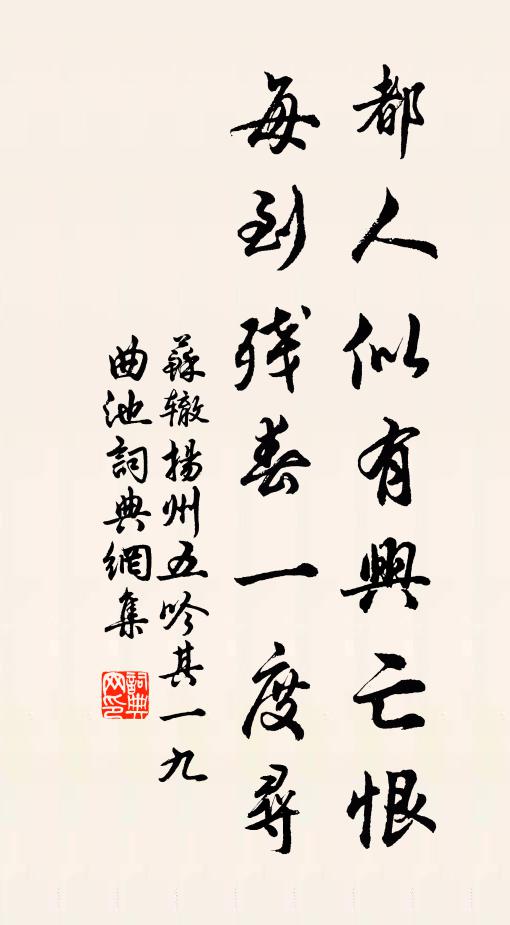 都人似有興亡恨
每到殘春一度尋
蘇辙揚州五吟其一九
曲池詞典網集
詞典网印